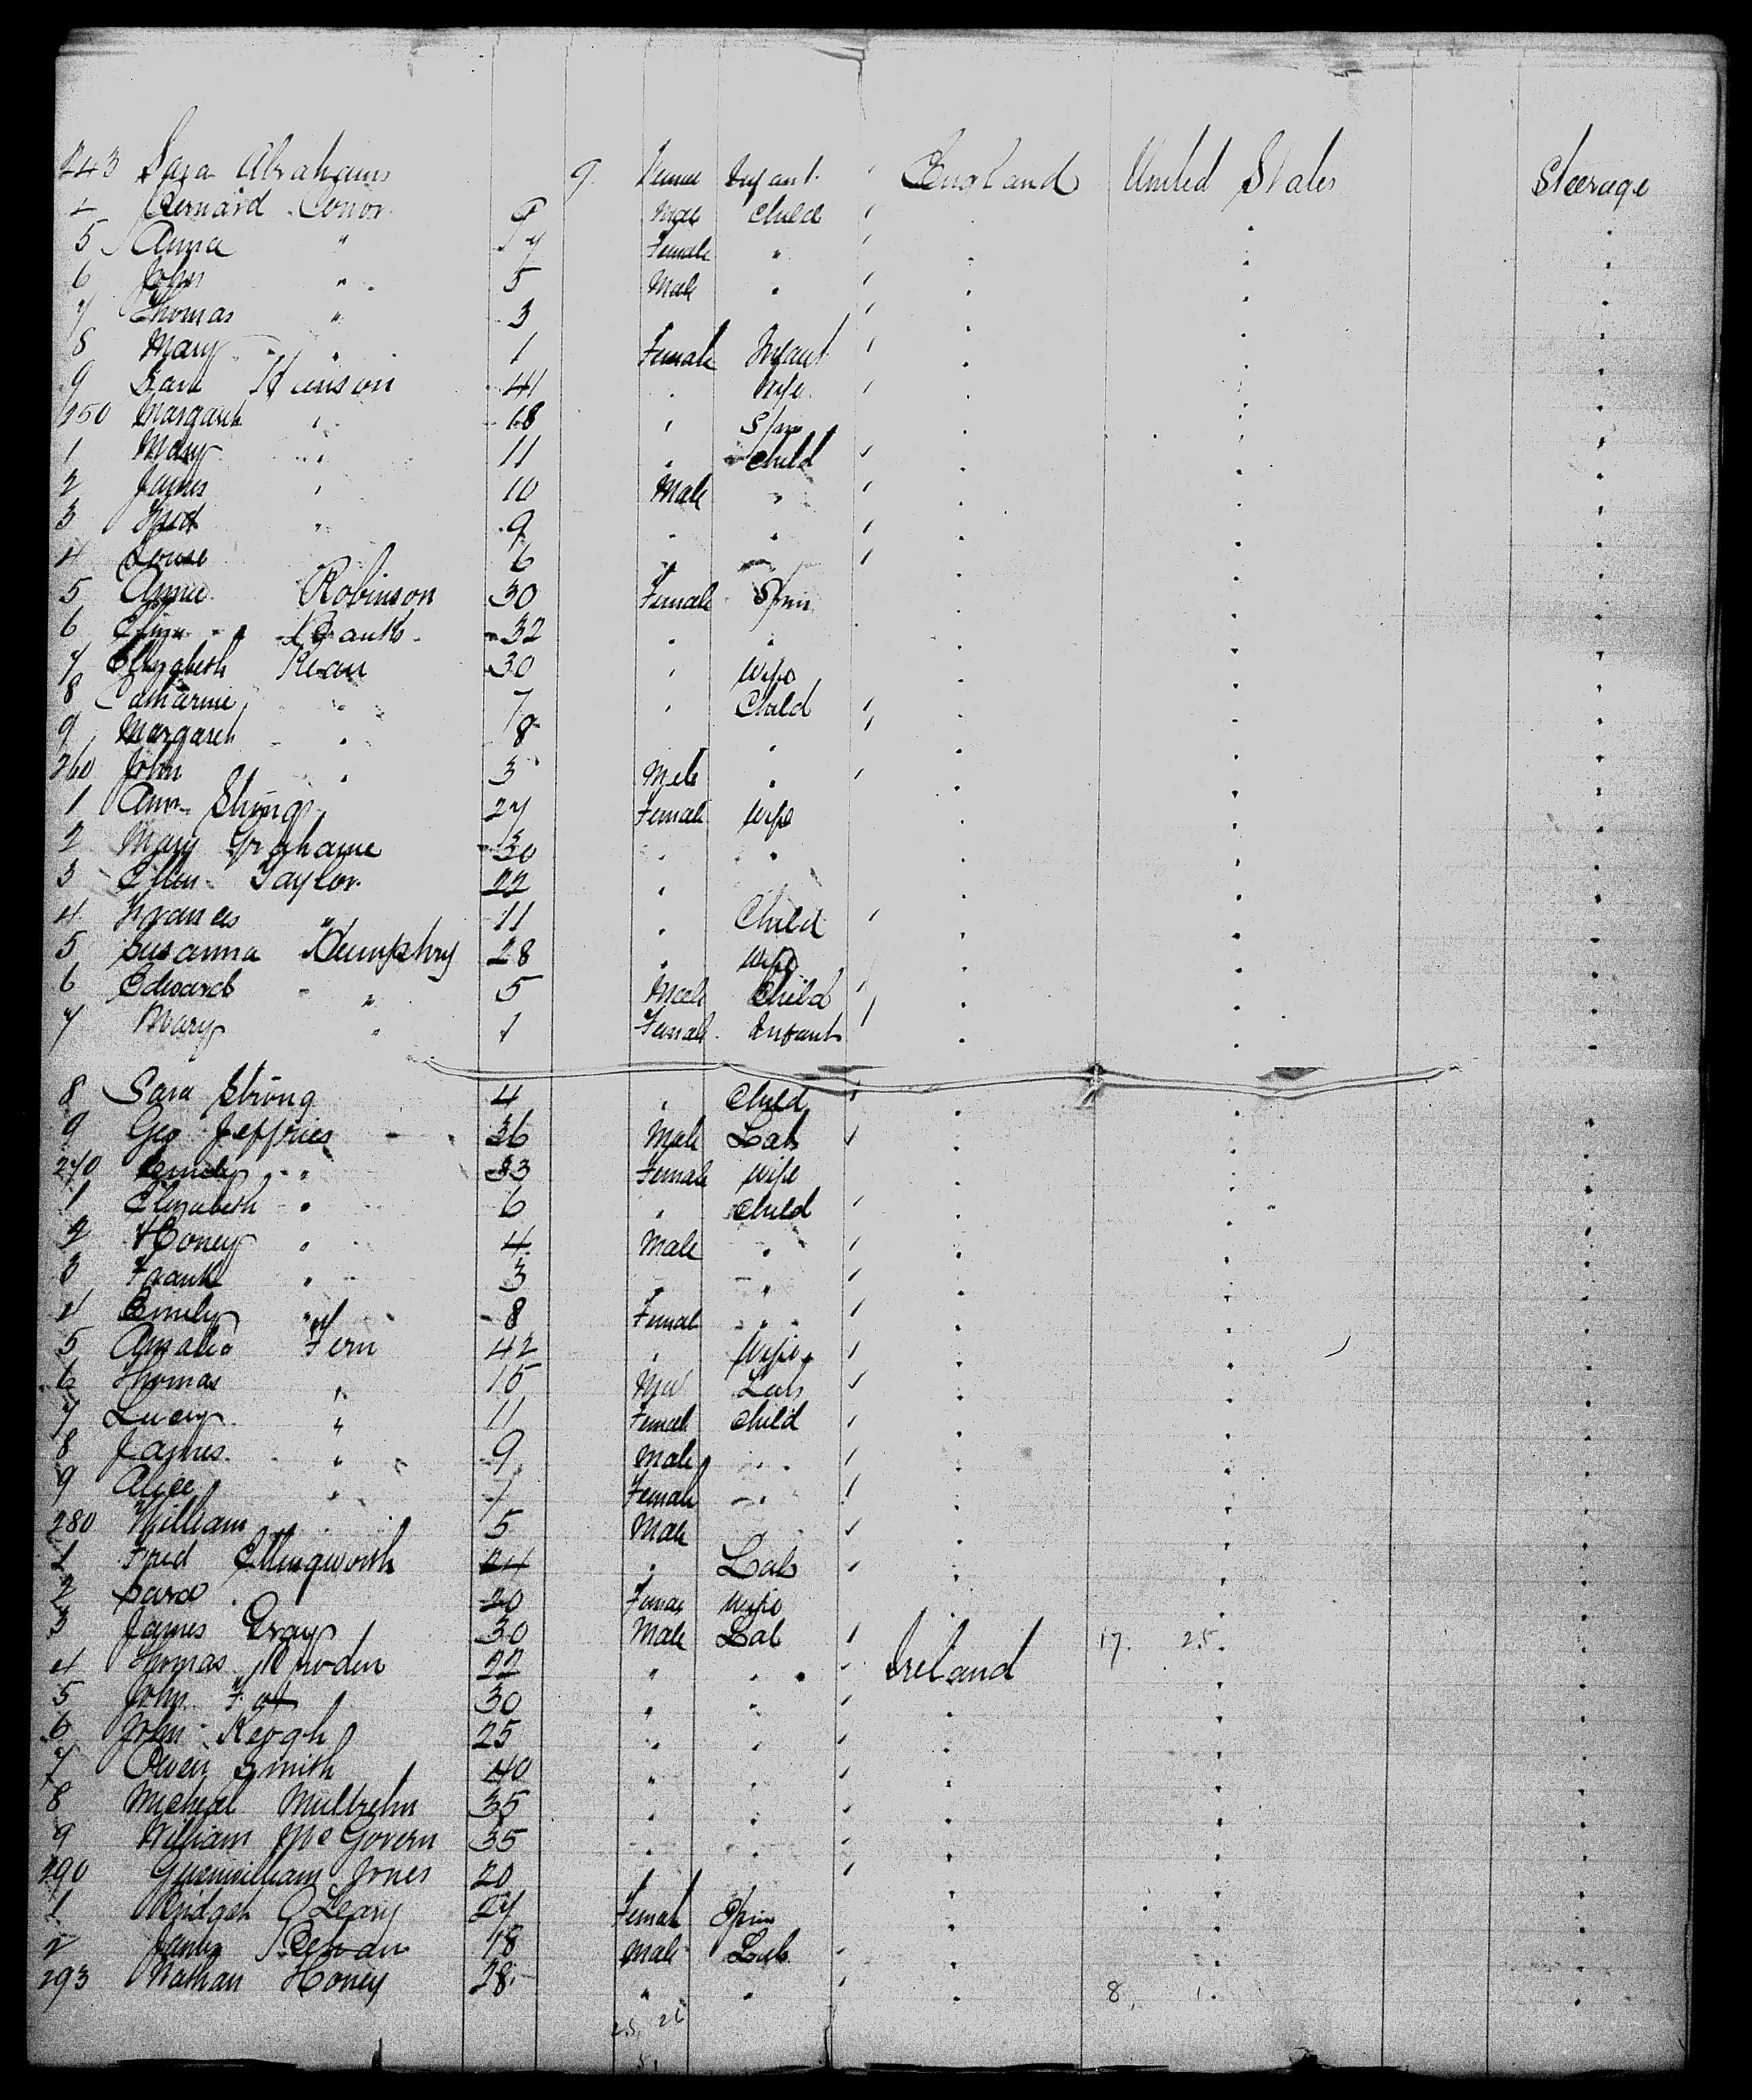 243 Sara Abrahams 9 Female Infant England United States Steerage
4 Bernard Conor 9 Male Child
5 Anna " 7 Female "
6 John " 5 Male "
7 Thomas " 3
8 Mary " 1 Female Infant
9 Sara Hunson 41 " Wife
250 Margareth " 18 " Spin
1 Mary " 11 " Child
2 James " 10 Male "
3 Fred " 9 " "
4 Louise 6 "
5 Annie Robinson 30 Female Spin
6 32 " "
7 Elizabeth Kean 30 " Wife
8 Catharine " 7 " Child
9 Margareth " 8 "
260 John " 3 Male "
1 Ann Strong 27 Female Wife
2 Mary Grahame 30 " "
3 Ellen Taylor 22 "
4 Frances " 11 " Child
5 Susanna Humphry 28 " Wife
6 Edward " 5 Male Child
7 Mary " 1 Female Infant
8 Sara Strong 4 " Child
9 Geo Jeffries 36 Male Lab
270 Emily " 33 Female Wife
1 Elizabeth " 6 " Child
2 Honey " 4 Male "
3 Frank " 3 " "
4 Emily " 8 Female "
5 Amalia Fern 42 " Wife
6 Thomas " 15 Male Lab
7 Lucy " 11 Female Child
8 James " 9 Male "
9 Alice " 7 Female "
280 William " 5 Male
1 Fred Ellingworth 24 " Lab
2 Sara " 20 Female Wife
3 James Gray 30 Male Lab 17. 25.
4 Thomas 22 " " Ireland
5 John 30 " "
6 John Keogh 25 " "
7 Owen Smith 40 " "
8 Micheal Mullrehn 35 " "
9 William McGovern 35 " "
290 Guenwilliam Jones 20
1 Bridget O Leary 27 Female Spin
2 James 18 Male Lab
293 Nathan Honey 28 " " 8, 1.
25, 26